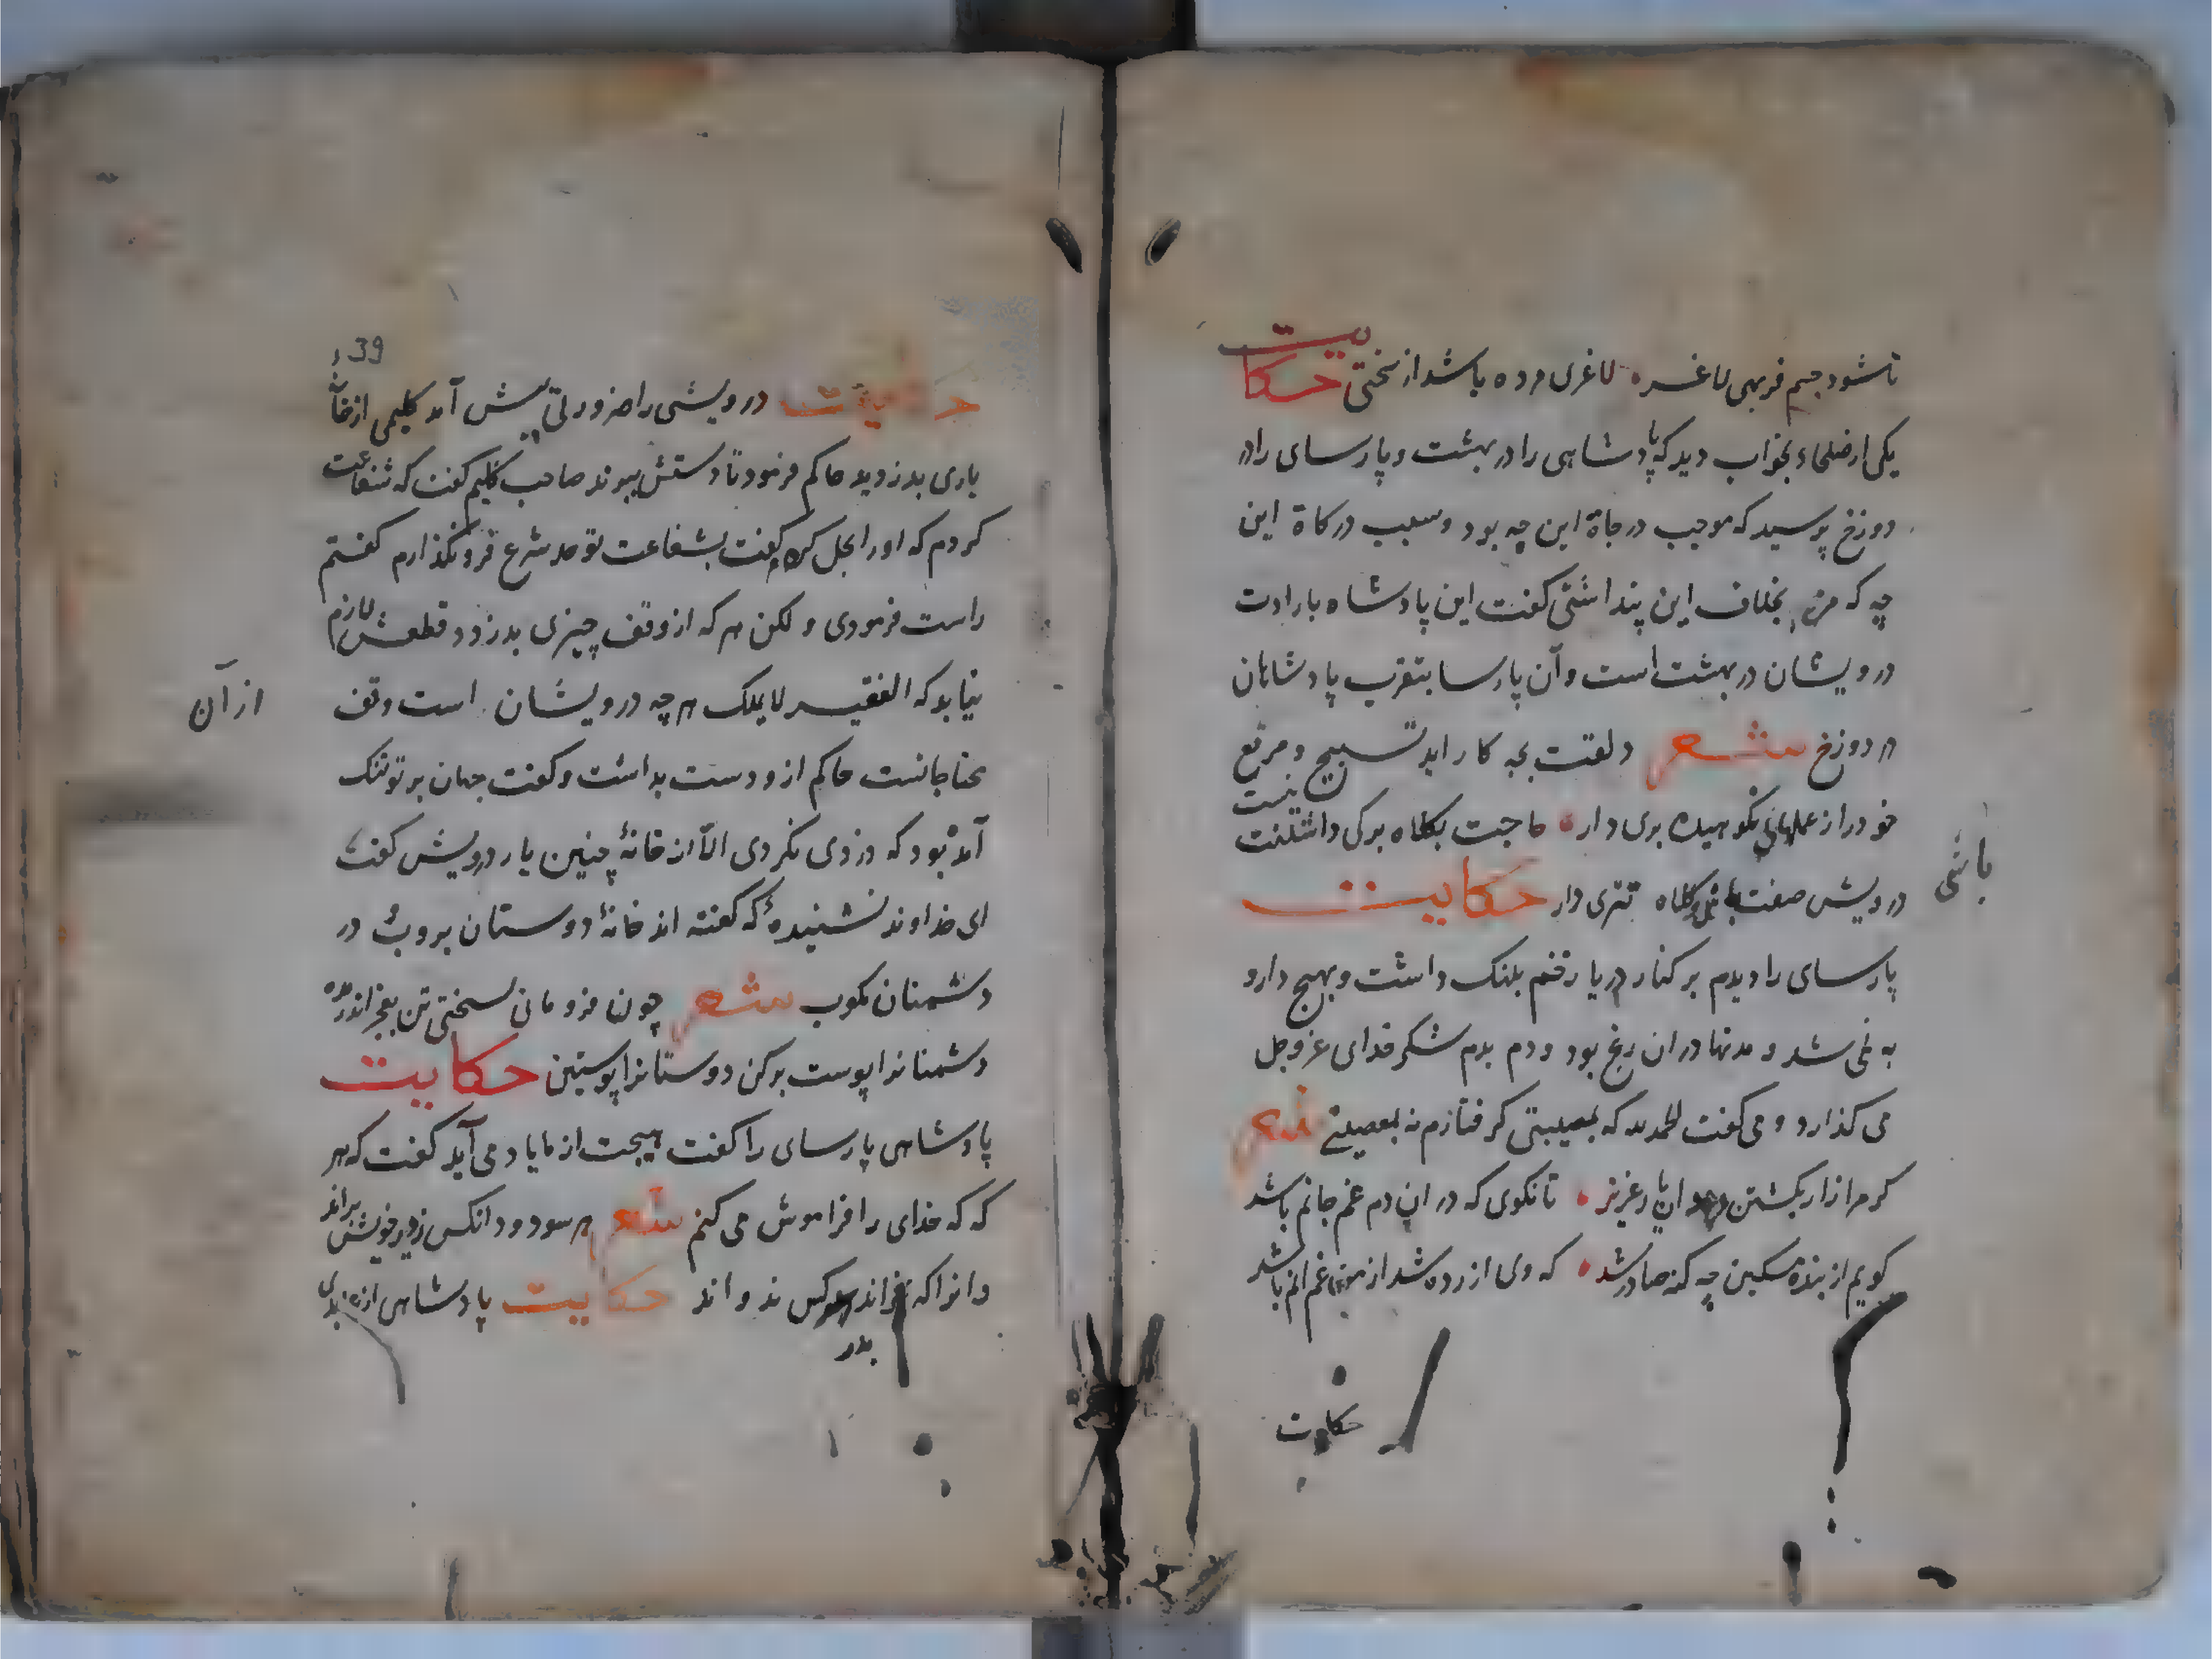 تا شود جسم فربهی لاغر لاغری مرده باشد از سختی حکایت
یکی از صلحاء بخواب دید که پادشاهی را در بهشت و پارسای را در
دوزخ پرسید که موجب درجاة این چه بود و سبب درکاة این
چه که من بخلاف این پنداشتی کفت این پادشاه بارادت
درویشان در بهشت است و آن پارسا بتقرب پادشاهان
در دوزخ شعر دلقت بچه کار اید تسبیح و مرقع
خود را از عملهای نکوهیده بری دار حاجت بکلاه برکی داشتنت نیست
درویش صفت باش کلاه تتری دار حکایت
باشی
پارسای را دیدم بر کنار دریا زخم پلنک داشت و بهیچ دارو
به نمی شد و مدتها در ان رنج بود و دم بدم شکر خدای عز و جل
می کذارد و می کفت الحمدلله که بمصیبتی کرفتارم نه بمعصیتی شعر
کر مرا زار بکشتن دهد ان یار عزیز تا نکوی که در ان دم غم جانم باشد
کویم از بنده مسکین چه کنه صادر شد که وی ازرده شد از من غم انم باشد
حکایت
39
حکایت درویشی را ضرورتی پیش آمد کلیمی از خانهٔ
یاری بدزدید حاکم فرمود تا دستش ببرند صاحب کلیم کفت که شفاعت
کردم که او را بحل کردم کفت بشفاعت تو حد شرع فرو نکذارم کفتم
راست فرمودی و لکن هر که از وقف چیزی بدزدد قطعش لازم
نیاید که الفقیر لا یملک هر چه درویشان است وقف
از آن
محتاجانست حاکم از و دست بداشت و کفت جهان بر تو تنک
آمده بود که دزدی نکردی الا از خانهٔ چنین یار درویش کفت
ای خداوند نشنیدهٔ که کفته اند خانهٔ دوستان بروب و در
دشمنان مکوب شعر چون فرو مانی بسختی تن بعجز اندر مده
دشمنانرا پوست برکن دوستانرا پوستین حکایت
پادشاهی پارسای را کفت هیچت از ما یاد می آید کفت که هر
که که خدای را فراموش می کنم شعر هر سو دود انکس ز در خویش براند
وانرا که بخواند بدر کس ندواند حکایت پادشاهی از